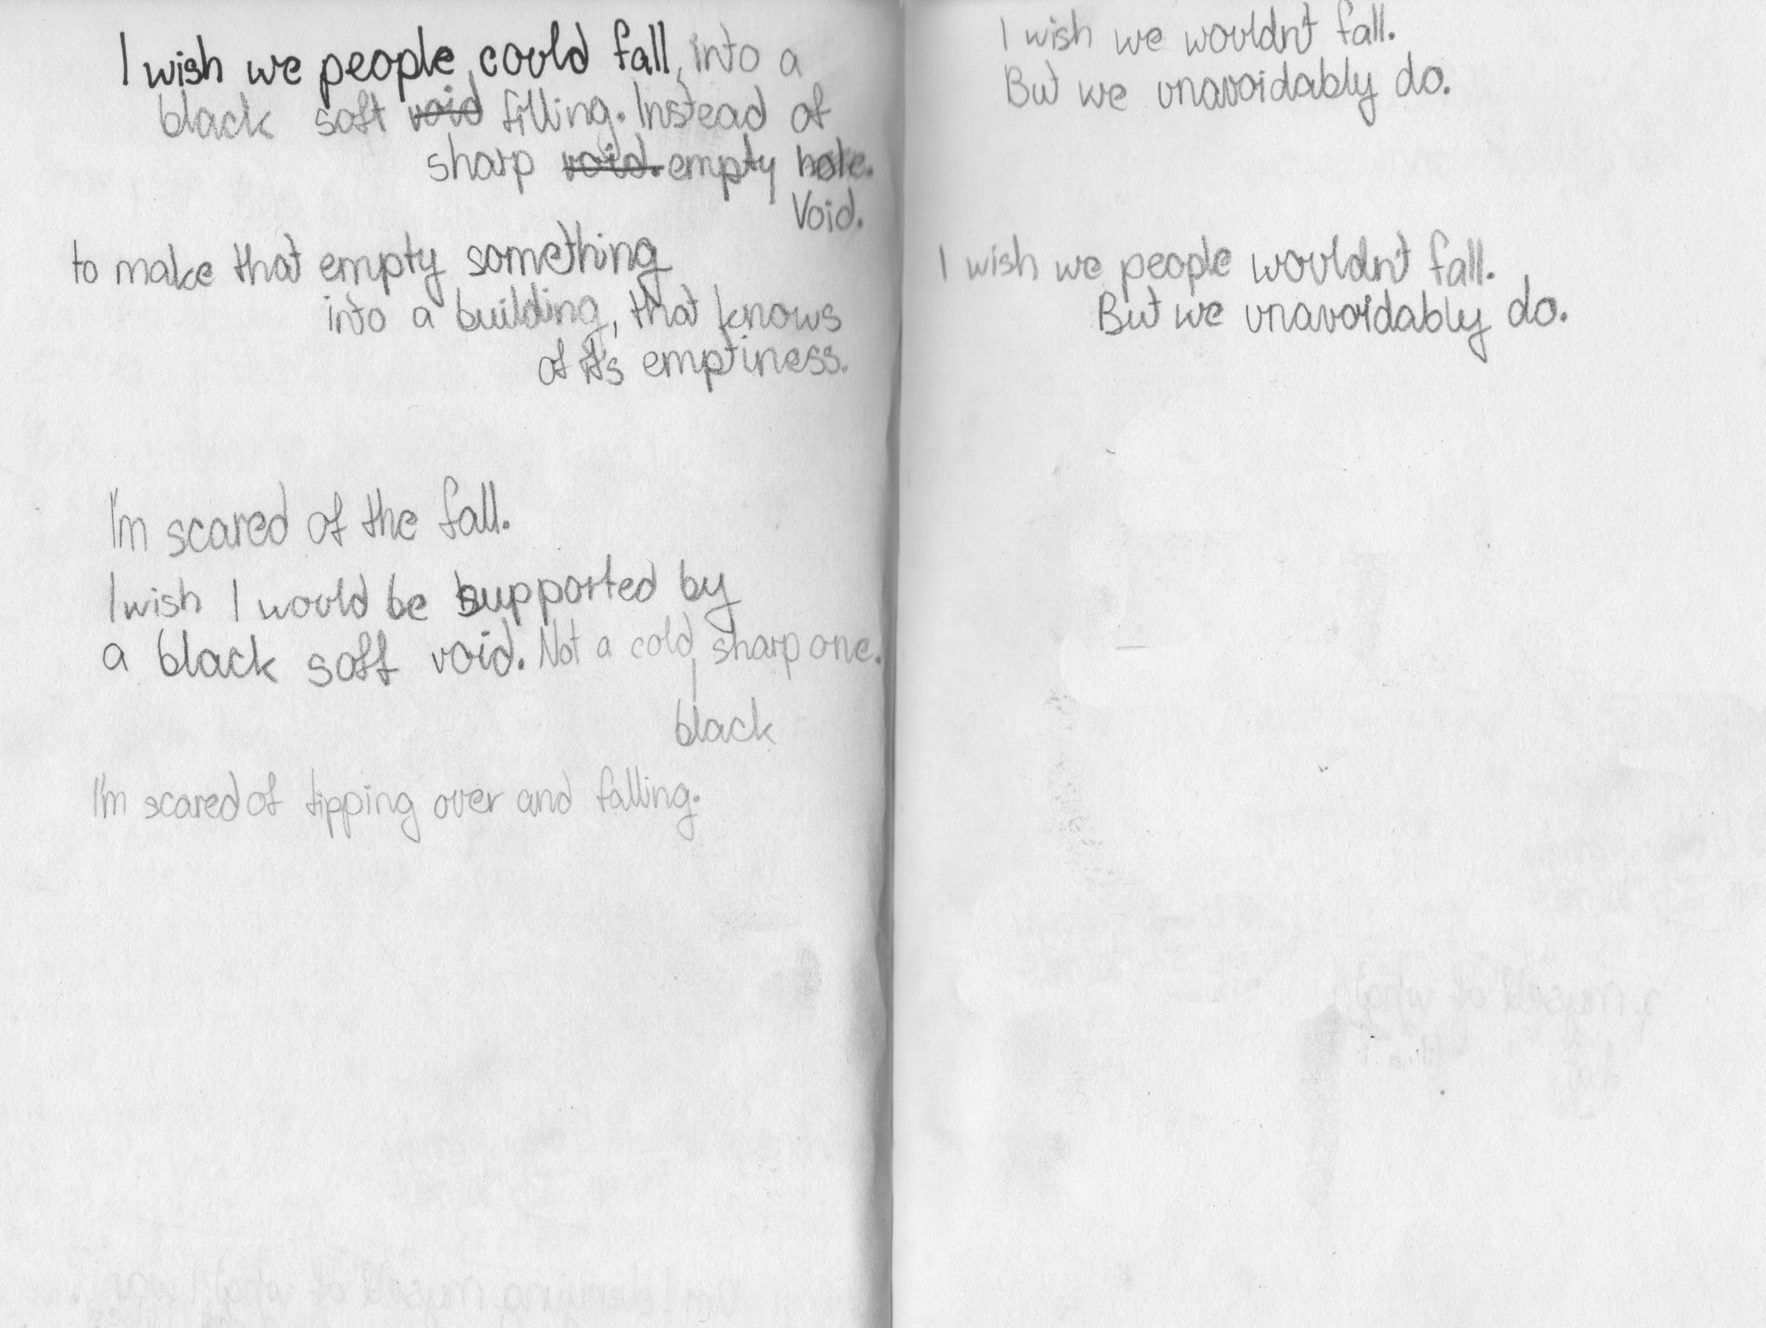 I wish we people could fall, into a
black soft void filling. Instead of
sharp void. empty hole.
Void.
to make that empty something
into a building, that knows
of it's emptiness.
I'm scared of the fall.
I wish I would be supported by
a black soft void. Not a cold, sharp one.
black
I'm scared of tipping over and falling.
I wish we wouldn't fall.
But we unavoidably do.
I wish we people wouldn't fall.
But we unavoidably do.